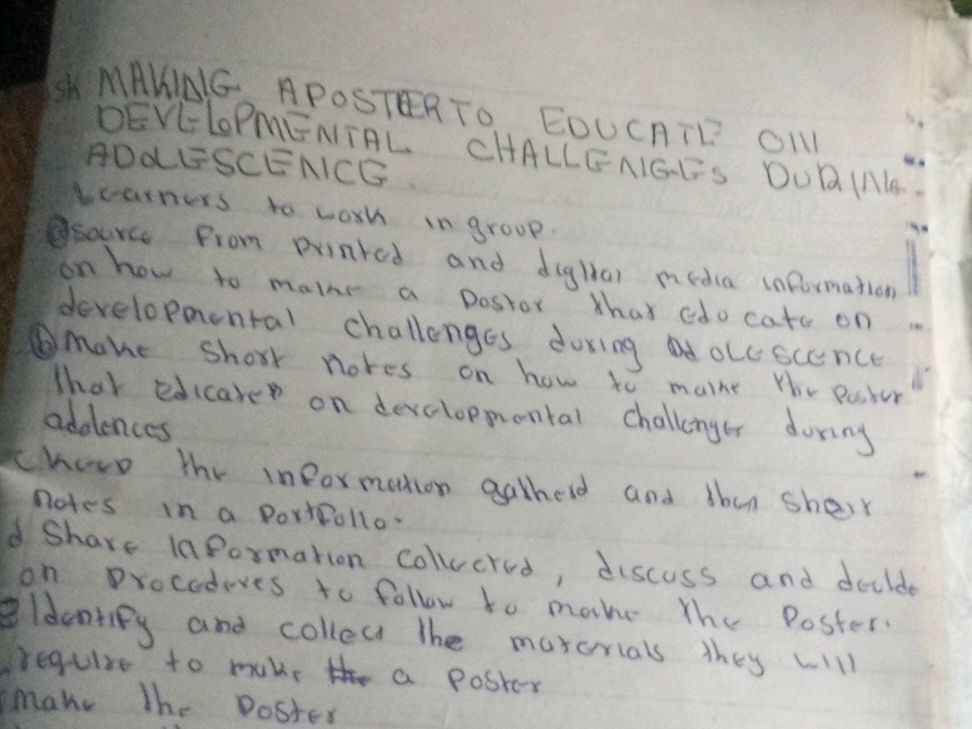 MAKING APOSTER TO EDUCATE ON
DEVELOPMENTAL CHALLENGES DURING
ADOLESCENCE.
Learners to work in group.
(a) source from printed and digital media information
on how to make a poster that educate on
developmental challenges during adolescence
(b) Make short notes on how to make the poster
that edicates on developmental challenges during
adolences
c keep the information gatherd and then
notes in a portfolio.
d Share information collected, discuss and decide
on procedures to follow to make the poster.
e Identify and collect the materials they will
require to make the a poster
make the poster